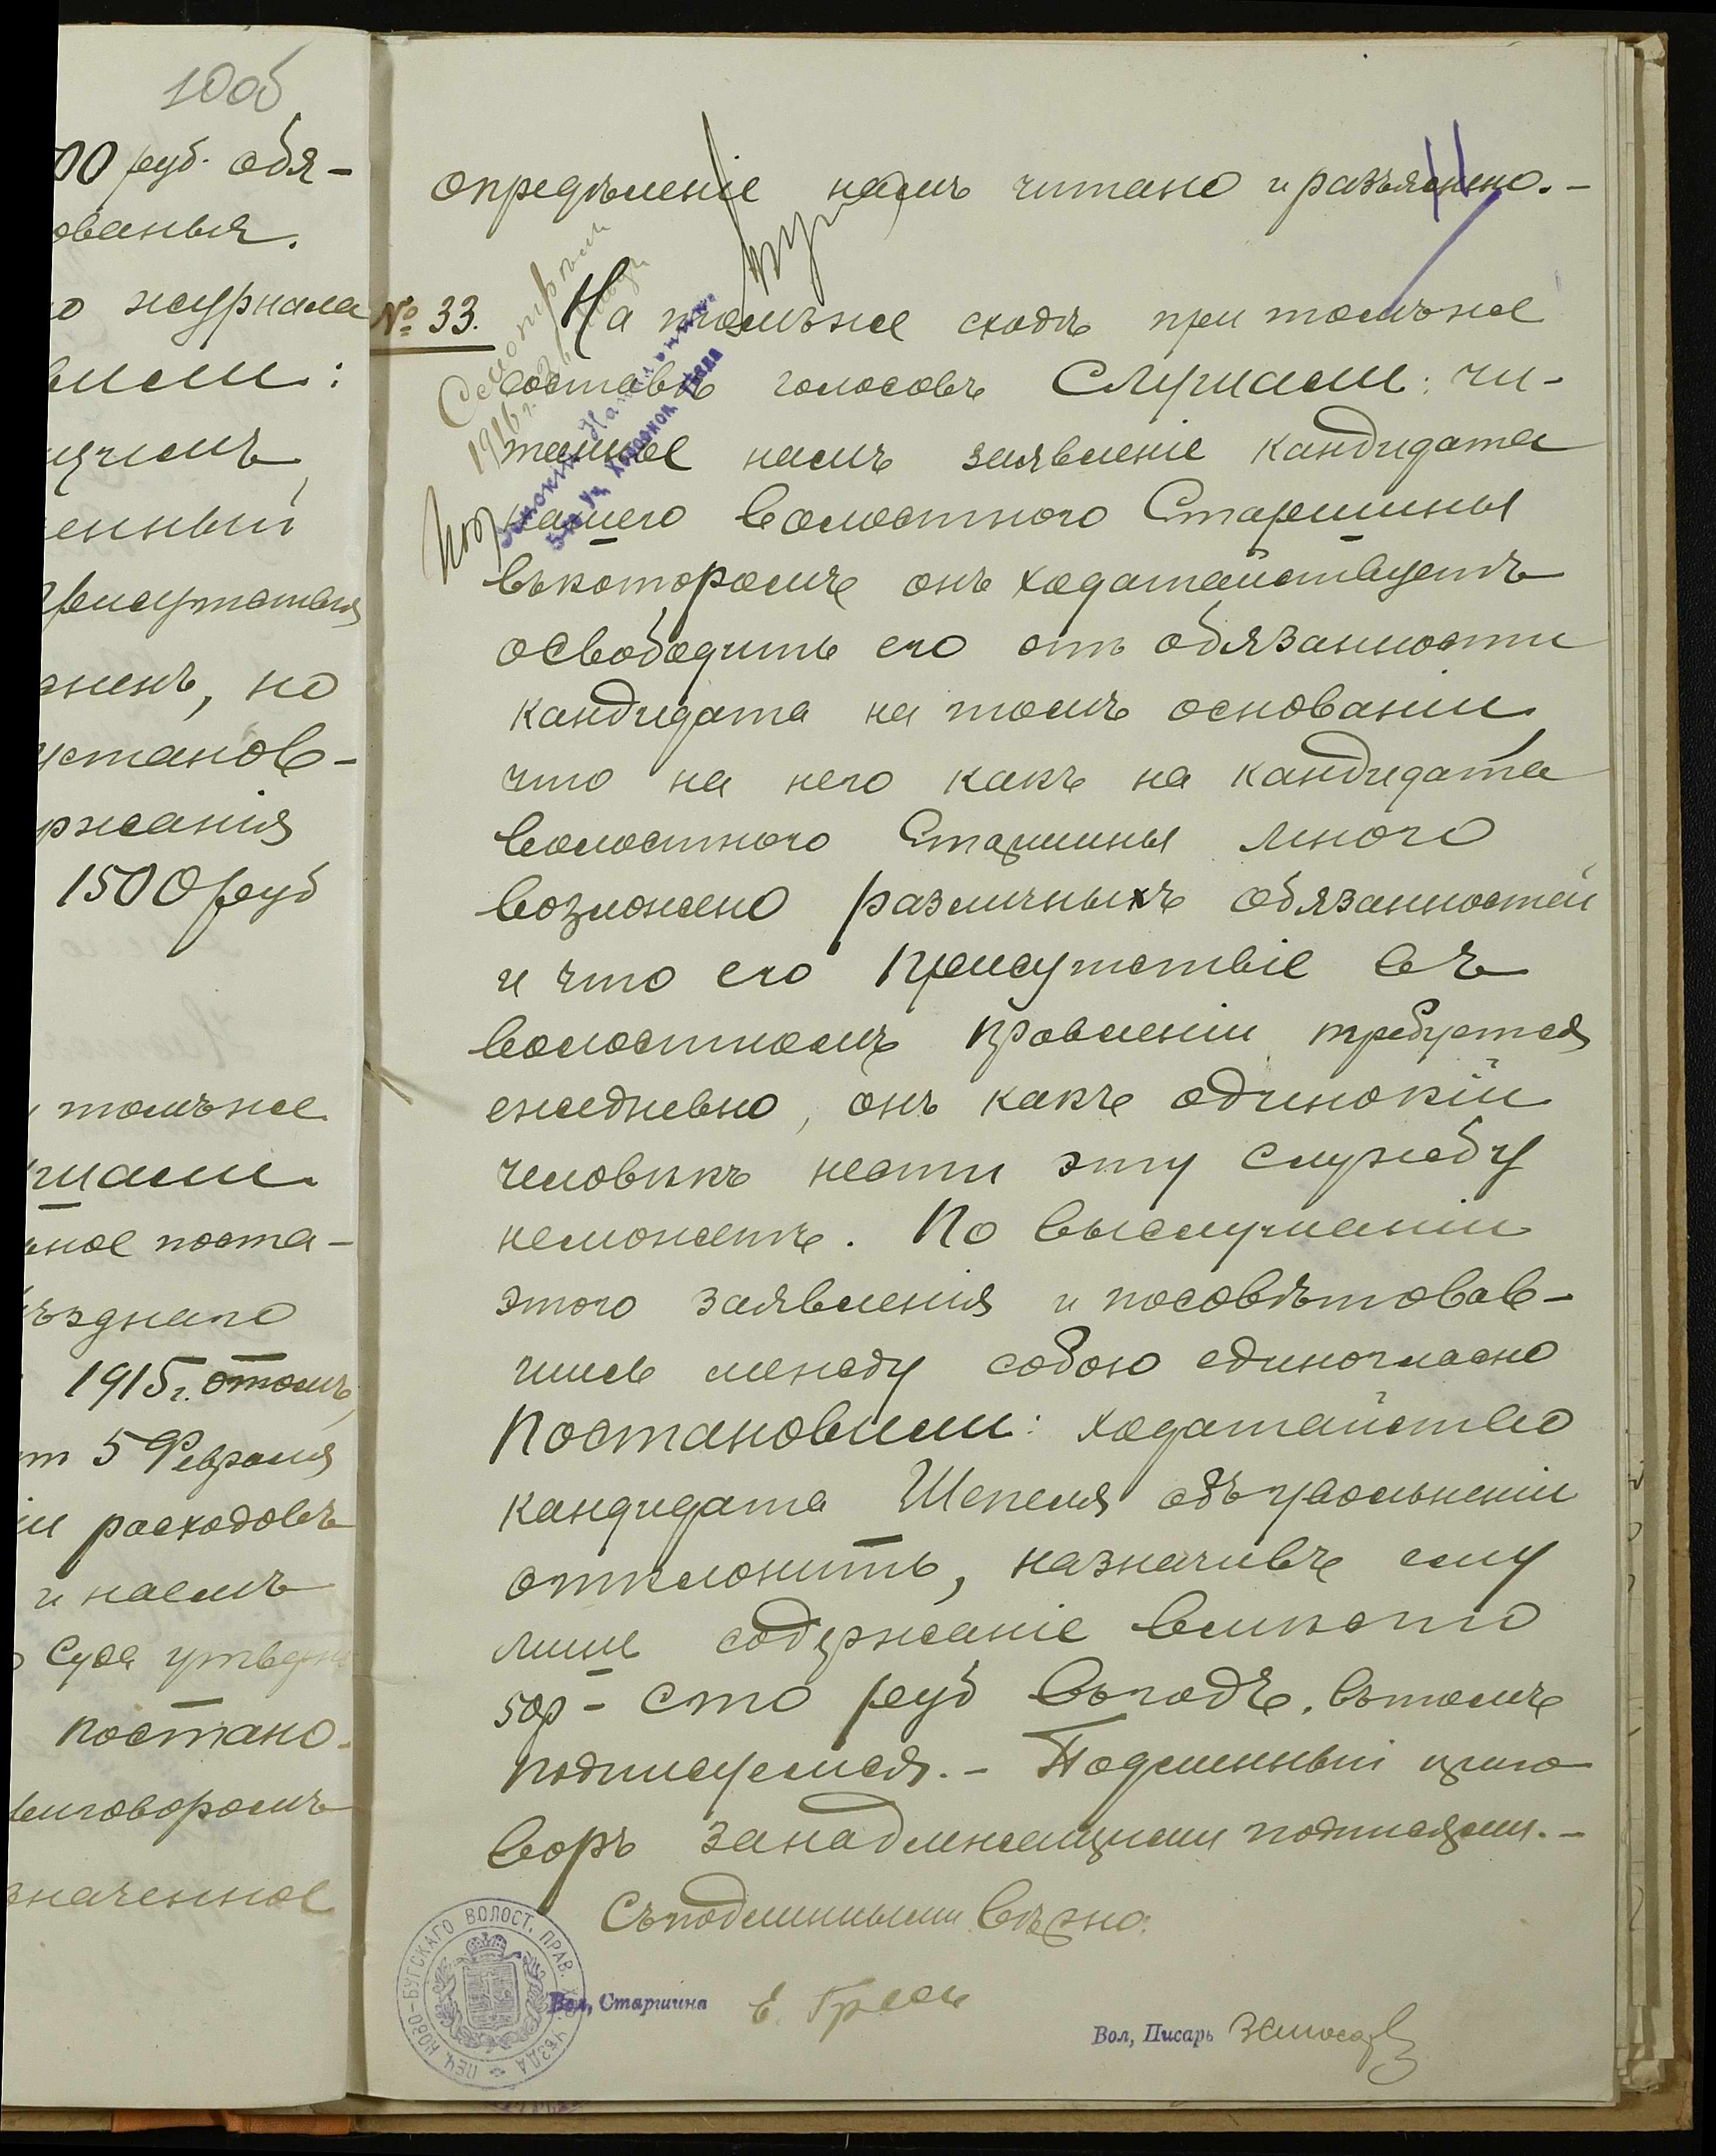 10об
00 руб. обя-
ованья.
о журнала
вили:
енный
присутствия
но
установ-
ржания
1500 руб
томъже
шали.
ное поста-
ѣзднаго
1915г. отомъ,
5 Февраля
ии расходовъ
и наемъ
Суда утверж
постано-
виговоромъ
значенное
11
опредѣленіе намъ читано и разъяснено.-
№ 33. На томъже сходѣ при томъже
составѣ голосовъ Слушали: чи-
танное намъ заявленіе кандидата
нашего Волостного Старшины
въкоторомъ онъ ходатайствуетъ
освободить его отъ обязанности
кандидата на томъ основаніи
что на него какъ на кандидата
Волостного Старшины много
возложено различныхъ обязанностей
и что его присутствіе въ
волостномъ правленіи требуется
ежедневно, онъ какъ одинокій
человѣкъ нести эту службу
неможетъ. По выслушаніи
этого заявленія и посовѣтовав-
шись между собою единогласно
Постановили: ходатайство
кандидата Шепеля объувольненіи
отклонить, назначивъ ему
лишь содержаніе
сто руб въгодъ, вътомъ
подписуемся.- Подлинный приго
воръ занадлежащими подписями.-
Съподлиннымъ вѣрно:
Вол, Старшина
Вол, Писарь
ПЕЧ. НОВО-БУГСКАГО ВОЛОСТ. ПРАВ. ХЕР. УѢЗДА
1916 г.